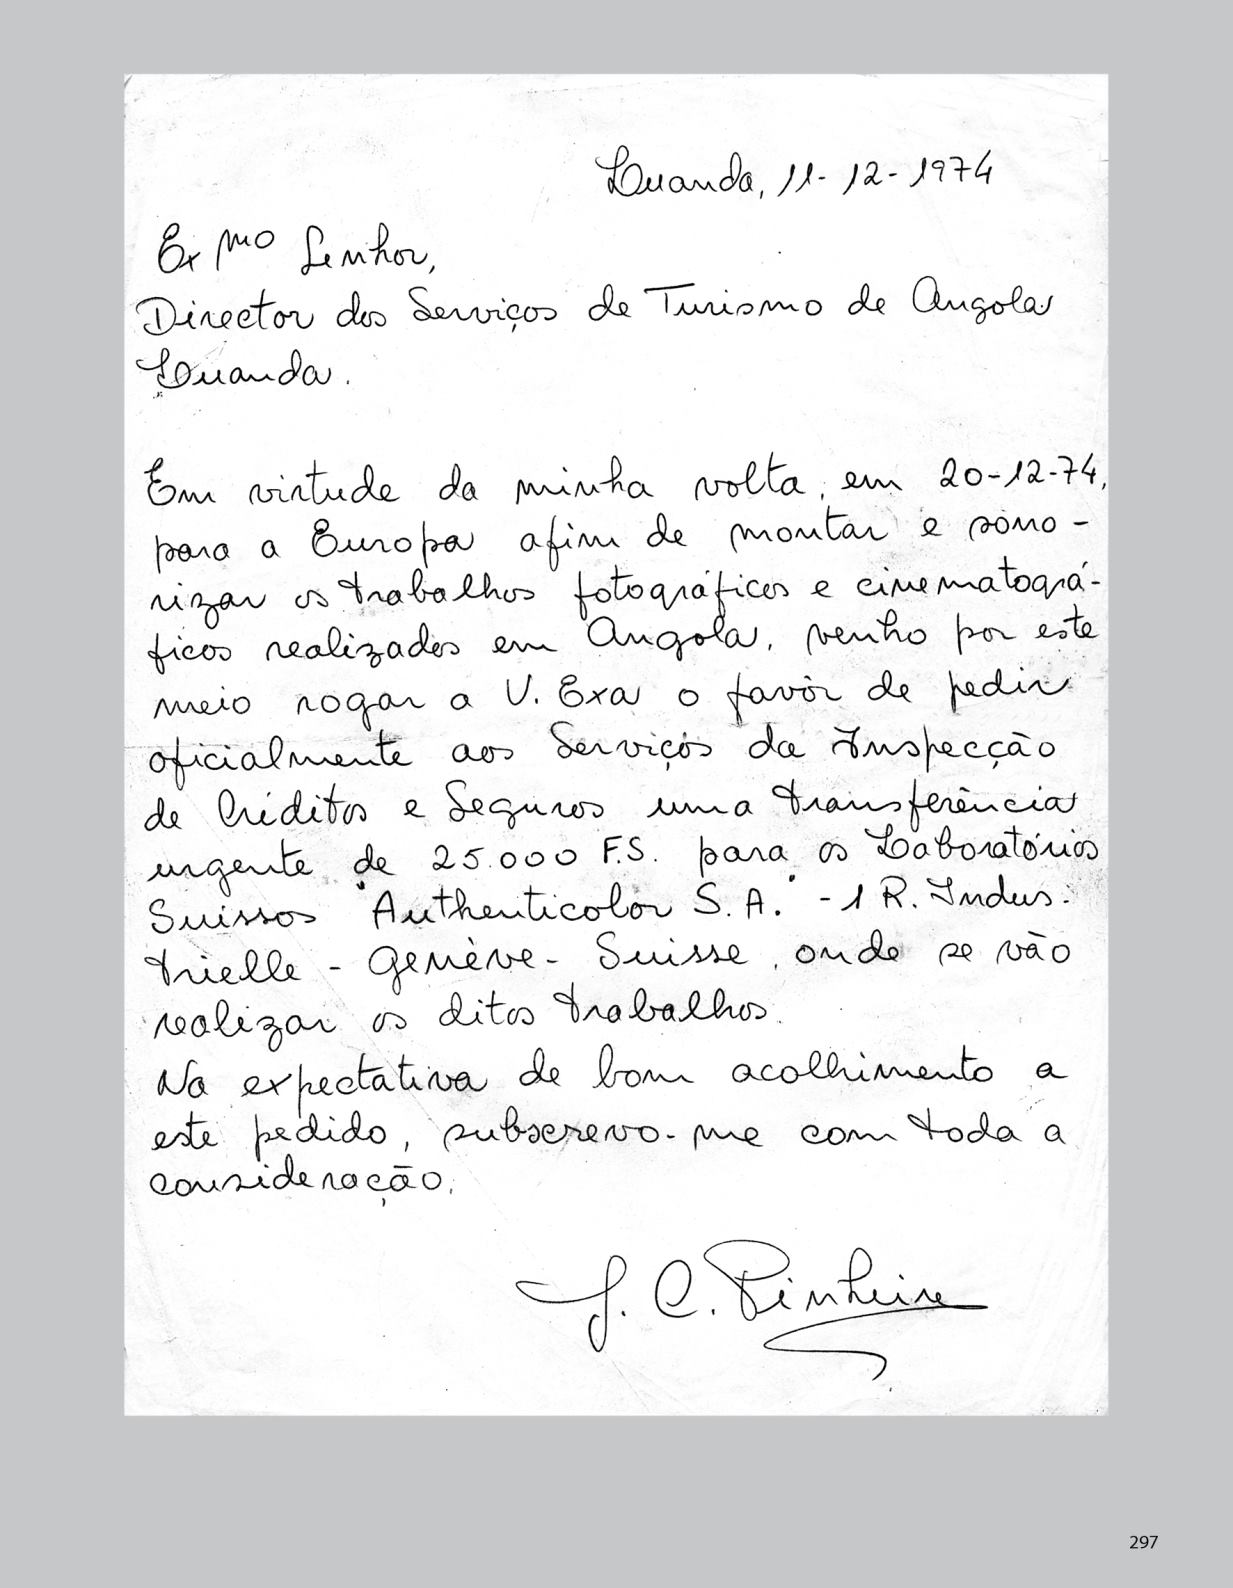 Luanda, 11-12-1974
Exmo Senhor,
Director dos Serviços de Turismo de Angola
Luanda.
Em virtude da minha volta, em 20-12-74,
para a Europa afim de montar e sono-
rizar os trabalhos fotográficos e cinematográ-
ficos realizados em Angola, venho por este
meio rogar a V. Exa o favôr de pedir
oficialmente aos Serviços da Inspecção
de Créditos e Seguros uma transferência
urgente de 25.000 F.S. para os Laboratórios
Suissos "Authenticolor S.A." - 1 R. Indus-
trielle - Genève - Suisse, onde se vão
realizar os ditos trabalhos.
Na expectativa de bom acolhimento a
este pedido, subscrevo-me com toda a
consideração,
J. C. Pinheiro
297